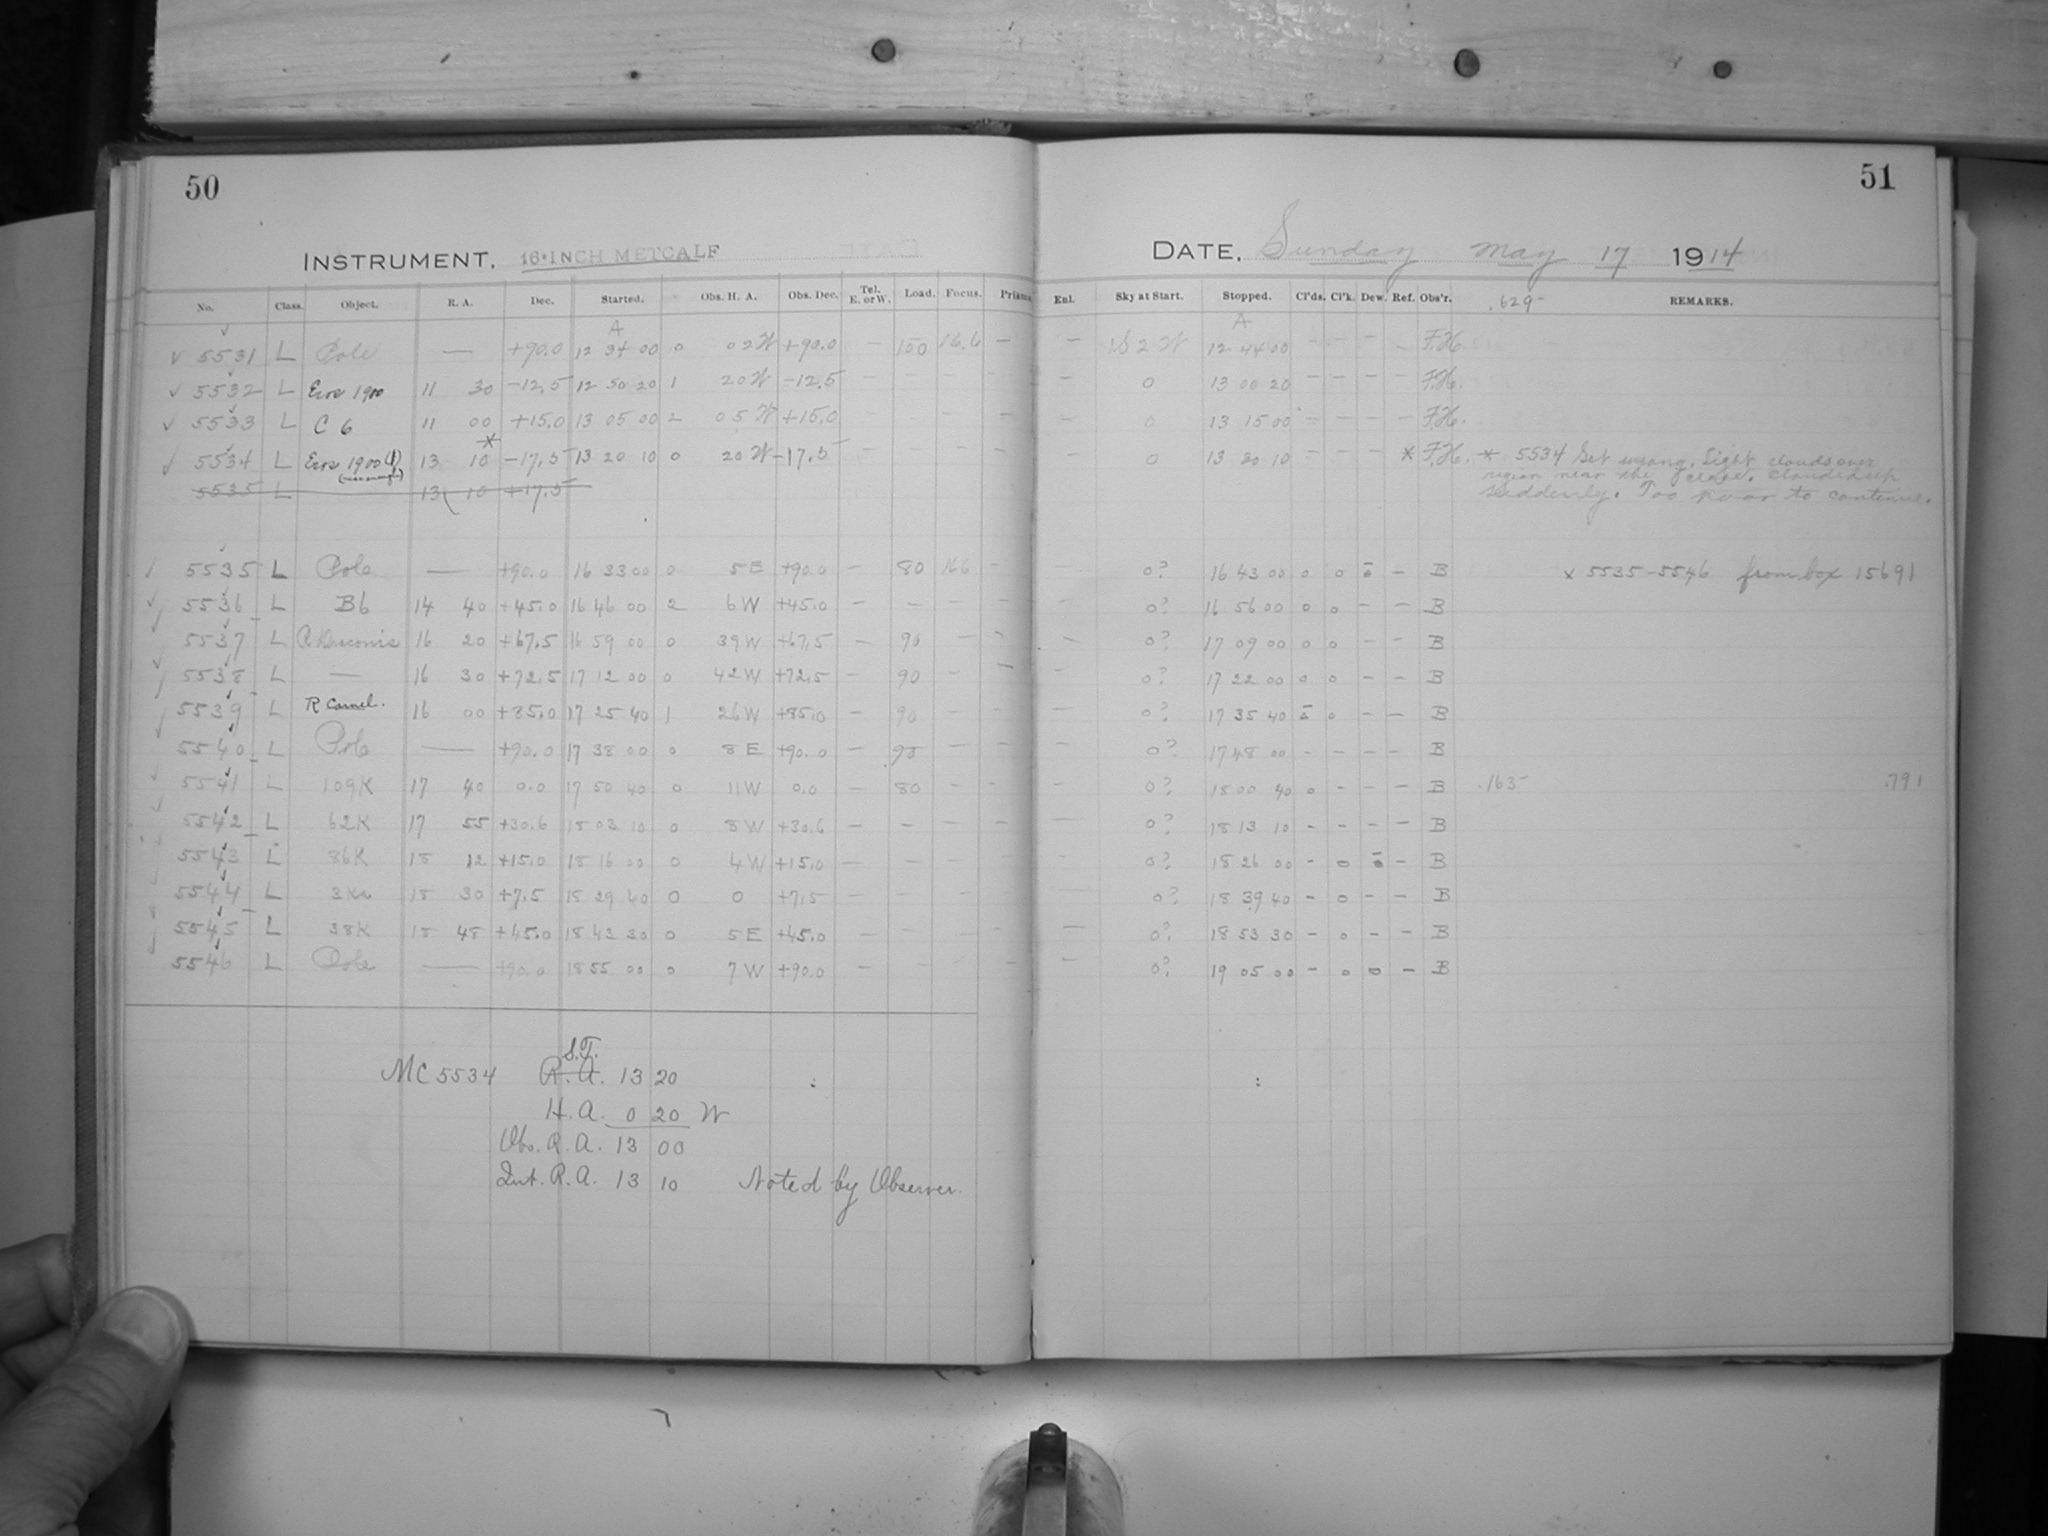 50
51
INSTRUMENT. 16-INCH METCALF
DATE. Sunday May 17 1914
No. Class. Object. R. A. Dec. Started. Obs. H. A. Obs. Dec. Tel. E. or W. Load. Focus. Prisms Enl. Sky at Start. Stopped. Cl'ds. Cl'k. Dew. Ref. Obs'r. .629- REMARKS.
A A
✓ 5531 L Pole — +90.0 12 34 00 0 02 W +90.0 — 150 16.6 — — 1S 2 W 12 44 00 — — — — F.H.
✓ 5532 L Eros 1900 11 30 -12.5 12 50 20 1 20 W -12.5 — 0 13 00 20 — — — — F.H.
✓ 5533 L C 6 11 00 +15.0 13 05 00 2 05 W +15.0 — 0 13 15 00 — — — — F.H.
✓ 5534 L Eros 1900 (1) 13 10 * -17.5 13 20 10 0 20 W -17.5 — 0 13 30 10 — — — * F.H. * 5534 Set wrong. Light clouds over
region near the
suddenly. Too poor to continue.
5535 L 13 10 +17.5
✓ 5535 L Pole — +90.0 16 33 00 0 5 E +90.0 — 80 16.6 — 0? 16 43 00 0 0 0 — B x 5535-5546 from box 15691
✓ 5536 L B6 14 40 +45.0 16 46 00 2 6 W +45.0 — — — — — 0? 16 56 00 0 0 — — B
✓ 5537 L R. Draconis 16 20 +67.5 16 59 00 0 39 W +67.5 — 90 — — — 0? 17 09 00 0 0 — — B
✓ 5538 L — 16 30 +72.5 17 12 00 0 42 W +72.5 — 90 — — — 0? 17 22 00 0 0 — — B
✓ 5539 L R Camel. 16 00 +85.0 17 25 40 1 26 W +85.0 — 90 — — — 0? 17 35 40 0 — — B
✓ 5540 L Pole — +90.0 17 38 00 0 8 E +90.0 — 90 — — — 0? 17 48 00 — — — — B
✓ 5541 L 109K 17 40 0.0 17 50 40 0 11 W 0.0 — 80 — — — 0? 18 00 40 0 — — — B .163- .791
✓ 5542 L 62K 17 55 +30.6 18 03 10 0 8 W +30.6 — — — — — 0? 18 13 10 — — — — B
✓ 5543 L 86K 18 12 +15.0 18 16 00 0 4 W +15.0 — — — — — 0? 18 26 00 — 0 0 — B
✓ 5544 L 18 30 +7.5 18 29 40 0 0 +7.5 — — — — — 0? 18 39 40 — 0 — — B
✓ 5545 L 38K 18 48 +45.0 18 43 30 0 5 E +45.0 — — — — — 0? 18 53 30 — 0 — — B
✓ 5546 L Pole — +90.0 18 55 00 0 7 W +90.0 — — — — — 0? 19 05 00 — 0 0 — B
S.T.
MC 5534 R.A. 13 20
H.A. 0 20 W
Obs. R.A. 13 00
Int. R.A. 13 10 Noted by Observer.